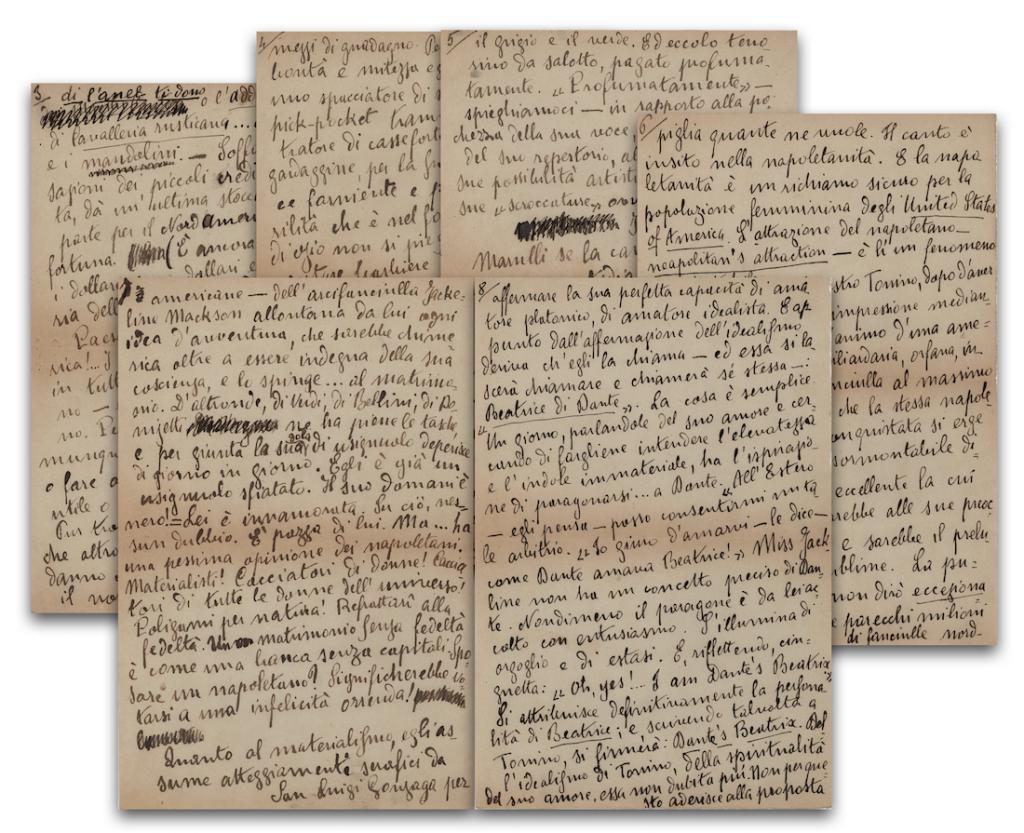 3/ di l'anel ti dono
o l'add
a Cavalleria rusticana...
e i mandolini. — Soff
sapioni dei piccoli credi
ta, dà un'ultima stocc
parte per il Nord amer
fortuna. (È ancora
i dollar dollari e
ria dell
Paes
rica!... I
in tutt
no —
no. Pe
munqu
o fare a
utile o
Pur tro
che altro
danno
il no
4/ mezzi di guadagno. Pe
bontà e mitezza eg
uno spacciatore di
pick-pocket tram
tratore di cassefort
gardaggine, per la fu
ce farniente e p
sibilità che è nel fo
d'ozio non si pie
barbiere
5/ il grigio e il verde. Ed eccolo teno
rino da salotto, pagato profuma-
tamente. « Profumatamente» —
spieghiamoci — in rapporto alla po-
chezza della sua voce
del suo repertorio, al
sue possibilità artist
sue "scroccature" ovv
Marulli se la ca
6/ piglia quante ne vuole. Il canto è
insito nella napoletanità. E la napo
letanità è un richiamo sicuro per la
popolazione femminina degli United States
of America. L'attrazione del napoletano —
neapolitan's attraction — è lì un fenomeno
stro Tonino, dopo d'aver
impressione median-
animo d'una ame-
iliardaria, orfana, in
nciulla al massimo
che la stessa napole
onquistata si erge
sormontabile di-
eccellente la cui
rebbe alle sue preoc
e sarebbe il prelu-
ublime. La pu-
non dirò ecceziona
parecchi milioni
di fanciulle nord-
americane — dell'arcifanciulla Jacke-
line Mackson allontana da lui ogni
idea d'avventura, che sarebbe chime-
rica oltre a essere indegna della sua
coscienza, e lo spinge... al matrimo-
nio. D'altronde, di Verdi, di Bellini, di Do-
nizetti ne ha piene le tasche
e per giunta la sua gola di usignuolo deperisce
di giorno in giorno. Egli è già un
usignuolo sfiatato. Il suo domani è
nero! = Lei è innamorata. Su ciò, nes-
sun dubbio. È pazza di lui. Ma... ha
una pessima opinione dei napoletani.
Materialisti! Cacciatori di donne! Caccia
tori di tutte le donne dell'universo!
Poligami per natura! Refrattarî alla
fedeltà. Un matrimonio senza fedeltà
è come una banca senza capitali. Spo-
sare un napoletano? Significherebbe vo-
tarsi a una infelicità orrenda!
Quanto al materialismo, egli as-
sume atteggiamenti serafici da
San Luigi Gonzaga per
8/ affermare la sua perfetta capacità di ama
tore platonico, di amatore idealista. E ap
punto dall'affermazione dell'idealismo
deriva ch'egli la chiama — ed essa si la
scerà chiamare e chiamerà sé stessa —:
"Beatrice di Dante". La cosa è semplice.
Un giorno, parlandole del suo amore e cer-
cando di fargliene intendere l'elevatezza
e l'indole immateriale, ha l'ispirazio-
ne di paragonarsi... a Dante. "All'Estero
— egli pensa — posso consentirmi un ta-
le arbitrio. « Io giuro d'amarvi — le dice —
come Dante amava Beatrice! » Miss Jack
line non ha un concetto preciso di Dan-
te. Nondimeno il paragone è da lei ac
colto con entusiasmo. S'illumina di
orgoglio e di estasi. E, riflettendo, cin-
guetta: "Oh, yes!... I am Dante's Beatrix
Si attribuisce definitivamente la persona
lità di Beatrice; e scrivendo talvolta a
Tonino, si firmerà: Dante's Beatrix. Del
l'idealismo di Tonino, della spiritualità
del suo amore, essa non dubita più. Non per que-
sto aderisce alla proposta